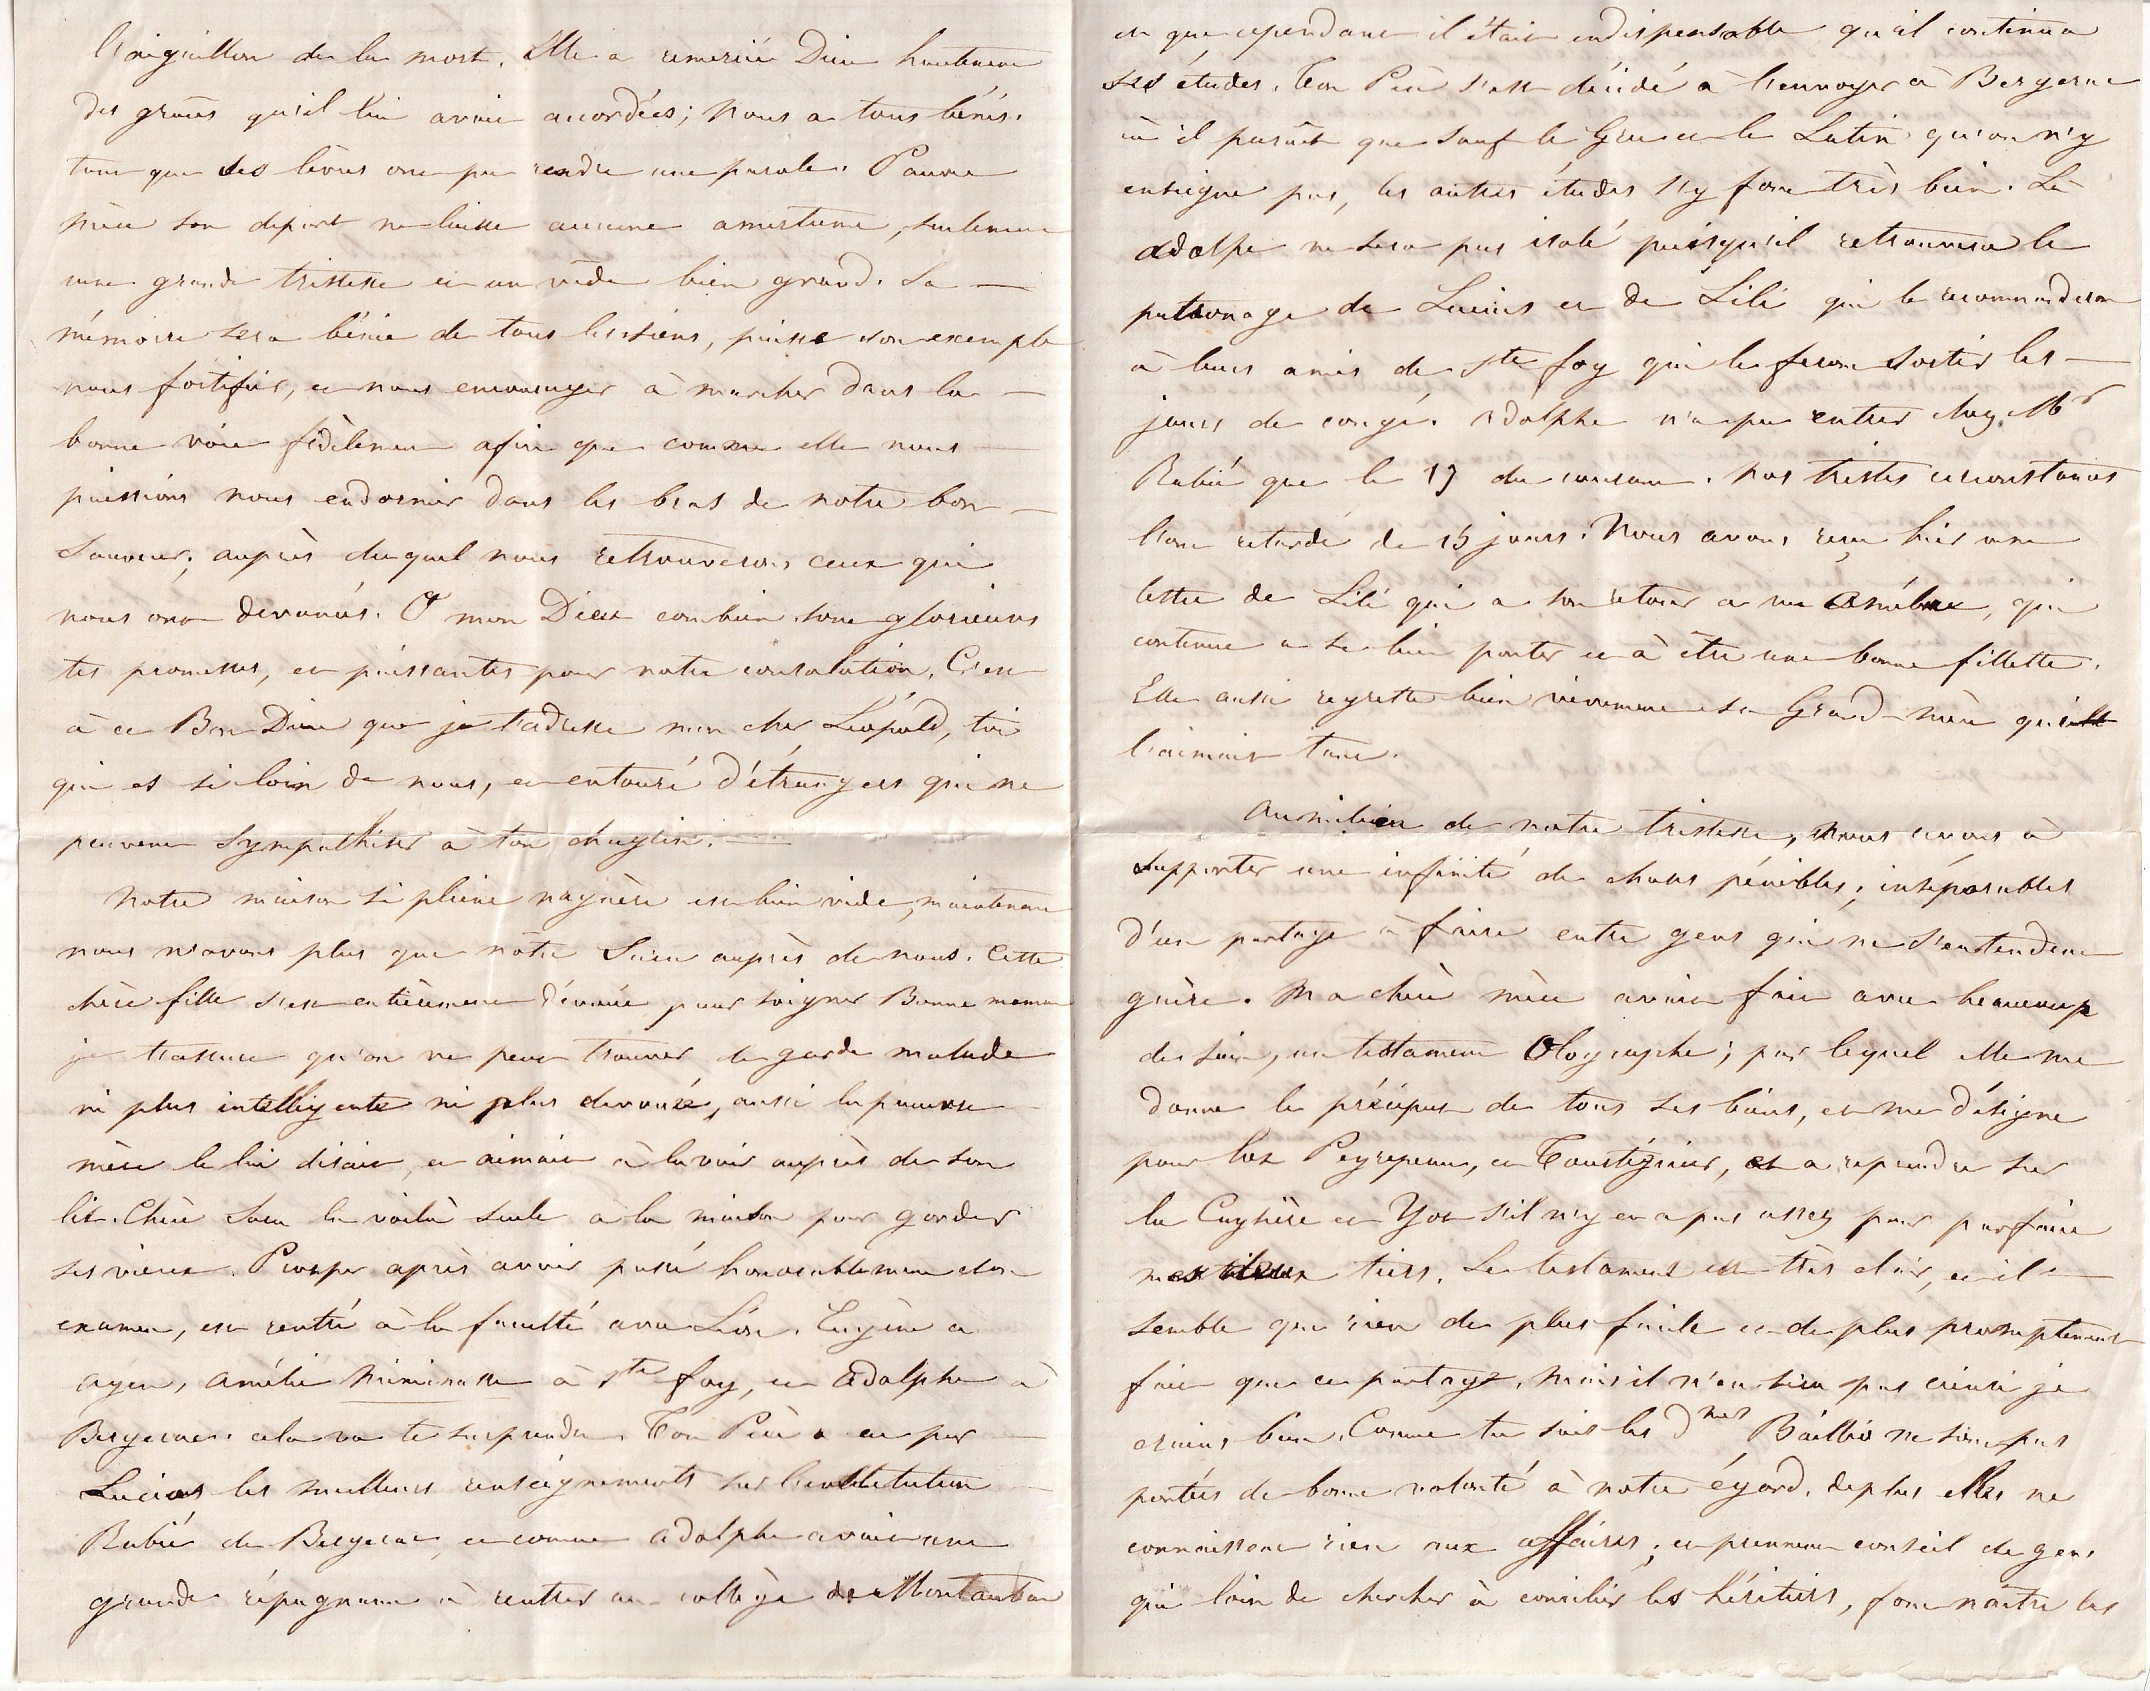 l'aiguillon de la mort. Elle a remercié Dieu hautement
des grâces qu'il lui avait accordées; nous a tous bénis.
tant que ses lèvres ont pu rendre une parole. Pauvre
mère son départ ne laisse aucune amertume, seulement
une grande tristesse et un vide bien grand. Sa —
mémoire sera bénie de tous les siens, puisse son exemple
nous fortifier, et nous encourager à marcher dans la —
bonne voie fidèlement afin que comme elle nous —
puissions nous endormir dans les bras de notre bon —
Sauveur; auprès duquel nous retrouverons ceux qui
nous ont devancés. O mon Dieu combien sont glorieuses
tes promesses, et puissantes pour notre consolation. C'est
à ce Bon Dieu que je t'adresse mon cher Léopold, toi
qui es si loin de nous, et entouré d'étrangers qui ne
peuvent sympathiser à ton chagrin. —
Notre maison si pleine naguère est bien vide, maintenant
nous n'avons plus que nôtre auprès de nous. Cette
chère fille s'est entièrement dévouée pour soigner Bonne maman
je t'assure qu'on ne peut trouver de garde malade
ni plus intelligente ni plus dévouée, aussi la pauvre
mère le lui disait, et aimait à la voir auprès de son
lit. Chère la voilà seule a la maison pour garder
ses vieux. Prosper après avoir passé honorablement son
examen, est rentré à la faculté avec Léon. Eugène a
agen, Amélie à Ste foy, et Adolphe à
Bergerac. cela va te surprendre. Ton Père a eu par —
Lucius les meilleurs renseignements sur l'institution —
Rubié de Bergerac, et comme adolphe avait une
grande répugnance à rentrer au collège de Montauban
et que cependant il était indispensable qu'il continua
ses études. Ton Père s'est décidé à l'envoyer à Bergerac
où il parait que sauf le Grec et le Latin qu'on n'y
enseigne pas, les autres études s'y font très bien. Là
adolphe ne sera pas isolé puisqu'il retrouvera le
patronage de Lucius et de Lili qui le recommanderont
à leurs amis de Ste foy qui le feront sortir les —
jours de congé. Adolphe n'a pu entrer chez Mr
Rubié que le 19 du courant. Nos tristes circonstances
l'ont retardé de 15 jours. Nous avons reçu hier une
lettre de Lili qui a son retour a vu Amélie, qui
continue a se bien porter et à être une bonne fillette.
Elle aussi regrette bien vivement sa Grand-mère qui
l'aimait tant.
Au milieu de notre tristesse, nous avons à
supporter une infinité de choses pénibles, inséparables
d'un partage à faire entre gens qui ne s'entendent
guère. Ma chère mère avait fait avec beaucoup
de soin, un testament Olographe; par lequel elle me
donne le préciput de tous ses biens, et me désigne
pour lot Peyrepeau, et, et a reprendre sur
la et s'il n'y en a pas assez pour parfaire
tiers. Le testament est très clair, et il —
semble que rien de plus facile et de plus promptement
fait que ce partage, mais il n'en sera pas ainsi je
crains bien. Comme tu sais les Dmes ne sont pas
portées de bonne volonté à notre égard, de plus elles ne
connaissent rien aux affaires; et prennent conseil de gens
qui loin de chercher à concilier les héritiers, font naître les